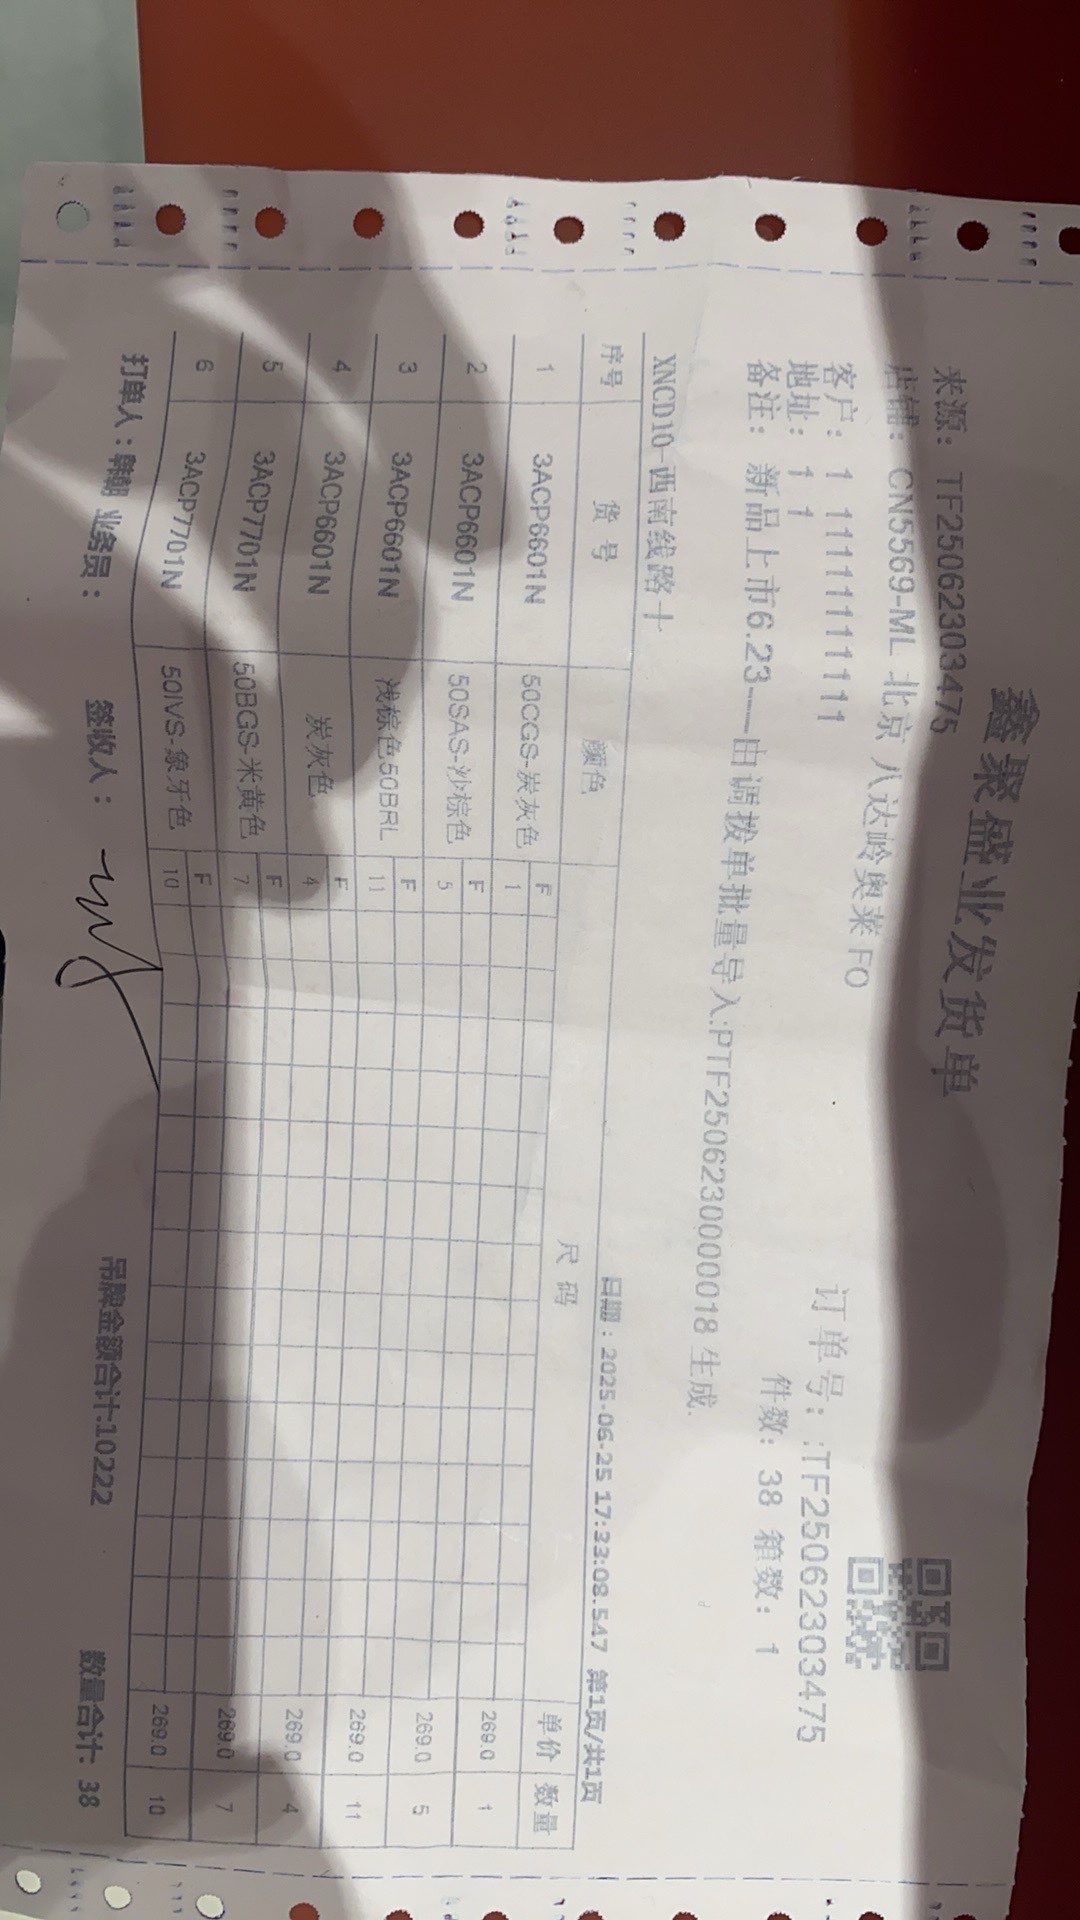 鑫聚盛业发货单
来源: TF25062303475
店铺: CN5569-ML 北京 八达岭奥莱 FO
客户: 1 11111111111 订单号: :TF25062303475
地址: 1 1
备注: 新品上市6.23---由调拨单批量导入:PTF250623000018 生成. 件数: 38 箱数: 1
XNCD10-西南线路十 日期：2025-06-25 17:33:08.547 第1页/共1页
序号 货号 颜色 尺码 单价 数量
1 3ACP6601N 50CGS-炭灰色 F 1 269.0 1
2 3ACP6601N 50SAS-沙棕色 F 5 269.0 5
3 3ACP6601N 浅棕色50BRL F 11 269.0 11
4 3ACP6601N 炭灰色 F 4 269.0 4
5 3ACP7701N 50BGS-米黄色 F 7 269.0 7
6 3ACP7701N 50IVS-象牙色 F 10 269.0 10
打单人： 业务员： 签收人： 吊牌金额合计:10222 数量合计: 38